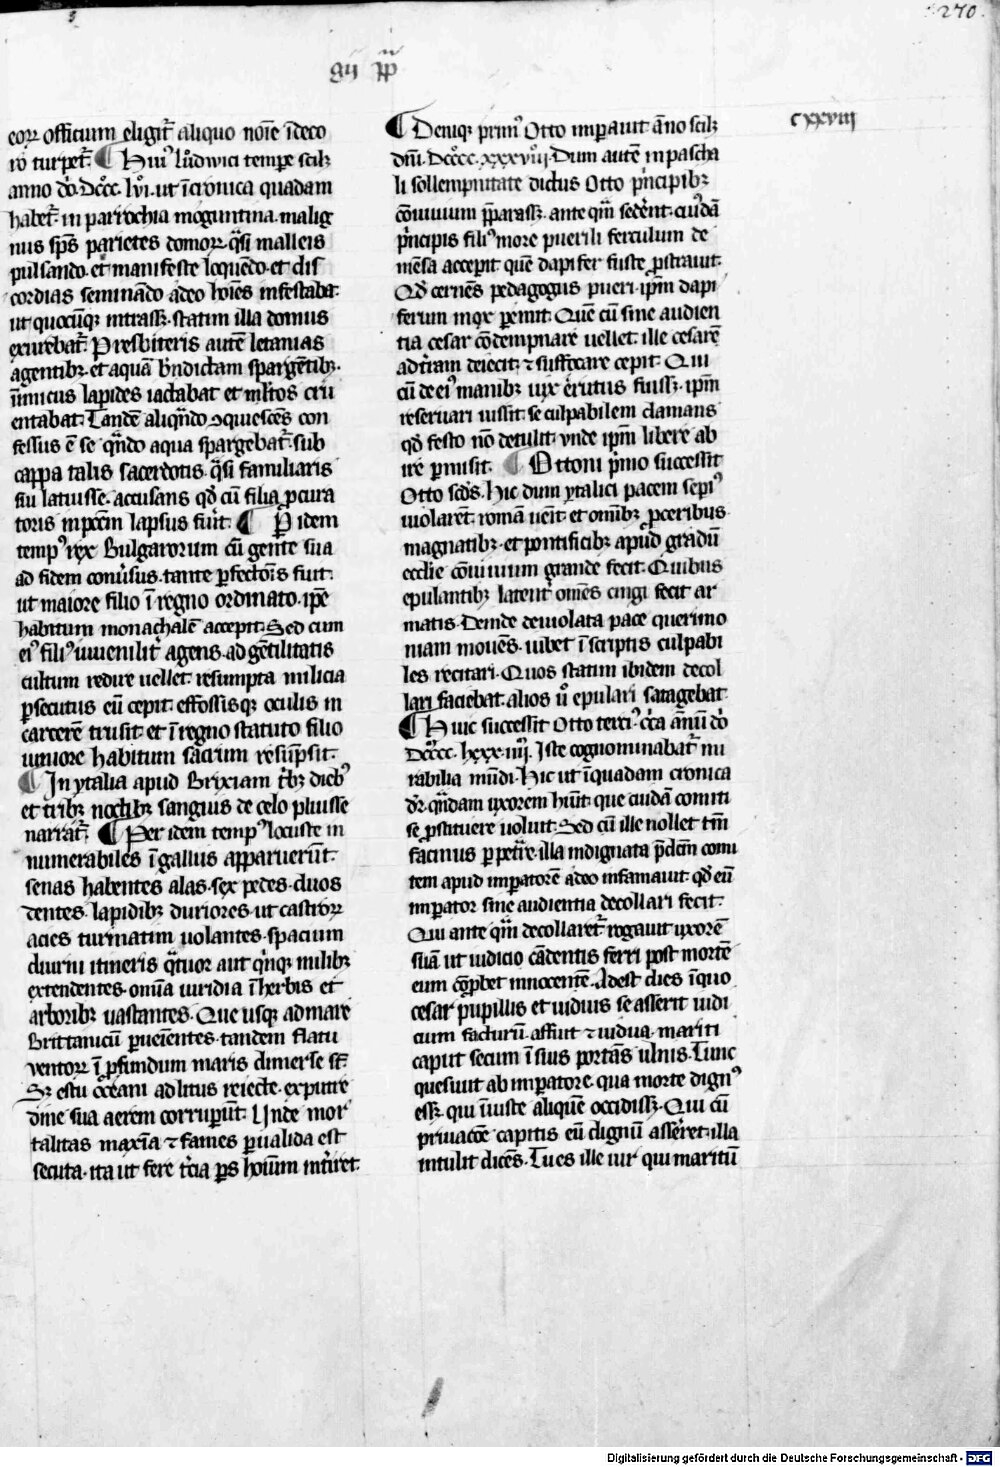 270.
gii pp̄
cxxviii
eoꝝ officium eligit᷑ aliquo noīe īdeco
ro turpet᷑. ¶ Huiꝰ ludwici tempe scilꝫ
anno dō. dccc. lvi. ut ī cronica quadam
habet᷑. in parrochia moguntina. malig
nus sp̄s parietes domoꝝ. q̄si malleis
pulsando. et manifeste loquēdo. et dis
cordias seminādo adeo hoīes infestabat.
ut quocūqꝫ intrassꝫ. statim illa domus
exurebat᷑. Presbiteris autē letanias
agentibꝫ. et aquā bn̄dictam spargētibꝫ.
inimicus lapides iactabat et ml̄tos cru
entabat. Tandē aliqn̄do ꝯquiescēs con
fessus ē se qn̄do aqua spargebat᷑. sub
cappa talis sacerdotis. q̄si familiaris
sui latuisse. accusans qd̓ cū filia ꝓcura
toris in pctm̄ lapsus fu̓it. ¶ P̱ idem
tempꝰ rex Bulgarorum cū gente sua
ad fidem conu̓sus. tante ꝑfectōis fuit.
ut maiore filio ī regno ordinato. ip̄e
habitum monachalē accepit. Sed cum
eiꝰ filiꝰ iuuenilit̓ agens. ad gētilitatis
cultum redire uellet. resumpta milicia
ꝑsecutus eū cepit. effossisqꝫ oculis in
carcerē trusit. et ī regno statuto filio
iuniore habitum sacrum resūpsit.
¶ In ytalia apud Brixiam tribꝫ diebꝰ
et tribꝫ noctibꝫ sanguis de celo pluisse
narrat᷑. ¶ Per idem tempꝰ locuste in
numerabiles ī gallus apparuerūt.
senas habentes alas. sex pedes. duos
dentes. lapidibꝫ duriores. ut castroꝝ
acies turmatim uolantes. spacium
diurni itineris qͣtuor aut qͥnqꝫ milibꝫ
extendentes. omīa uiridia ī herbis et
arboribꝫ uastantes. Que usqꝫ ad mare
Brittanicū ꝑueniētes. tandem flatu
ventoꝝ ī ꝓfundum maris dimerse st̄.
Sꝫ estu occeani ad litus reiecte. ex putre
dine sua aerem corruperūt. Unde mor
talitas maxīa ⁊ fames ꝑualida est
secuta. ita ut fere t̓cia ꝑs hoīum int̓iret.
¶ Deniqꝫ primꝰ Otto imꝑauit āno scilꝫ
dn̄i. dcccc. xxxviii. Dum autē in pascha
li sollempnitate dictus Otto pͥncipibꝫ
cōuiuium p̄parassꝫ. ante qͣm sedēnt. cuiꝰdā
pͥncipis filiꝰ more puerili ferculum de
mēsa accepit. quē dapifer fuste ꝓstrauit.
Qd̓ cernēs pedagogus pueri. ip̄m dapi
ferum mox ꝑemit. Quē cū sine audien
tia cesar cōdempnare uellet. ille cesarē
ad t̓ram deiecit. ⁊ suffocare cepit. Qui
cū de eiꝰ manibꝫ uix erutus fuissꝫ. ip̄m
reseruari iussit. se culpabilem clamans
qd̓ festo nō detulit. vnde ip̄m libere ab
ire ꝑmisit. ¶ Ottoni pͥmo successit
Otto scd̓s. Hic dum ytalici pacem sepiꝰ
uiolarēt. romā uēit. et omībꝫ ꝓceribus.
magnatibꝫ. et pontificibꝫ apud gradū
eccl̓ie cōuiuium grande fecit. Quibus
epulantibꝫ latent̓ omēs cingi fecit ar
matis. Deinde de uiolata pace querimo
niam mouēs. iubet ī scriptis culpabi
les recitari. Quos statim ibidem decol
lari faciebat. alios u̓o epulari satagebat.
¶ Huic successit Otto terciꝰ. c̓ca ānū dō
dcccc. lxxx. iiii. Iste cognominabat᷑ mi
rabilia mūdi. Hic ut ī quadam cronica
dr̄. qn̄dam uxorem hūit. que cuidā comiti
se ꝓstituere uoluit. Sed cū ille nollet tm̄
facinus ꝑpet̓re. illa indignata p̄dcm̄ comi
tem apud imꝑatorē adeo infamauit. qd̓ eū
imꝑator sine audientia decollari fecit.
Qui ante qͣm decollaret᷑. rogauit uxorē
suā ut iudicio cādentis ferri post mortē
eum cōꝓbet innocentē. Adest dies ī quo
cesar pupillis et uiduis se asserit iudi
cium facturū. affuit ⁊ uidua. mariti
caput secum ī suis portās ulnis. Tunc
quesiuit ab imꝑatore. qua morte dignꝰ
essꝫ. qui iniuste aliquē occidissꝫ. Qui cū
priuacōe capitis eū dignū asseret. illa
intulit dicēs. Tu es ille uir qui maritū
Digitalisierung gefördert durch die Deutsche Forschungsgemeinschaft - DFG